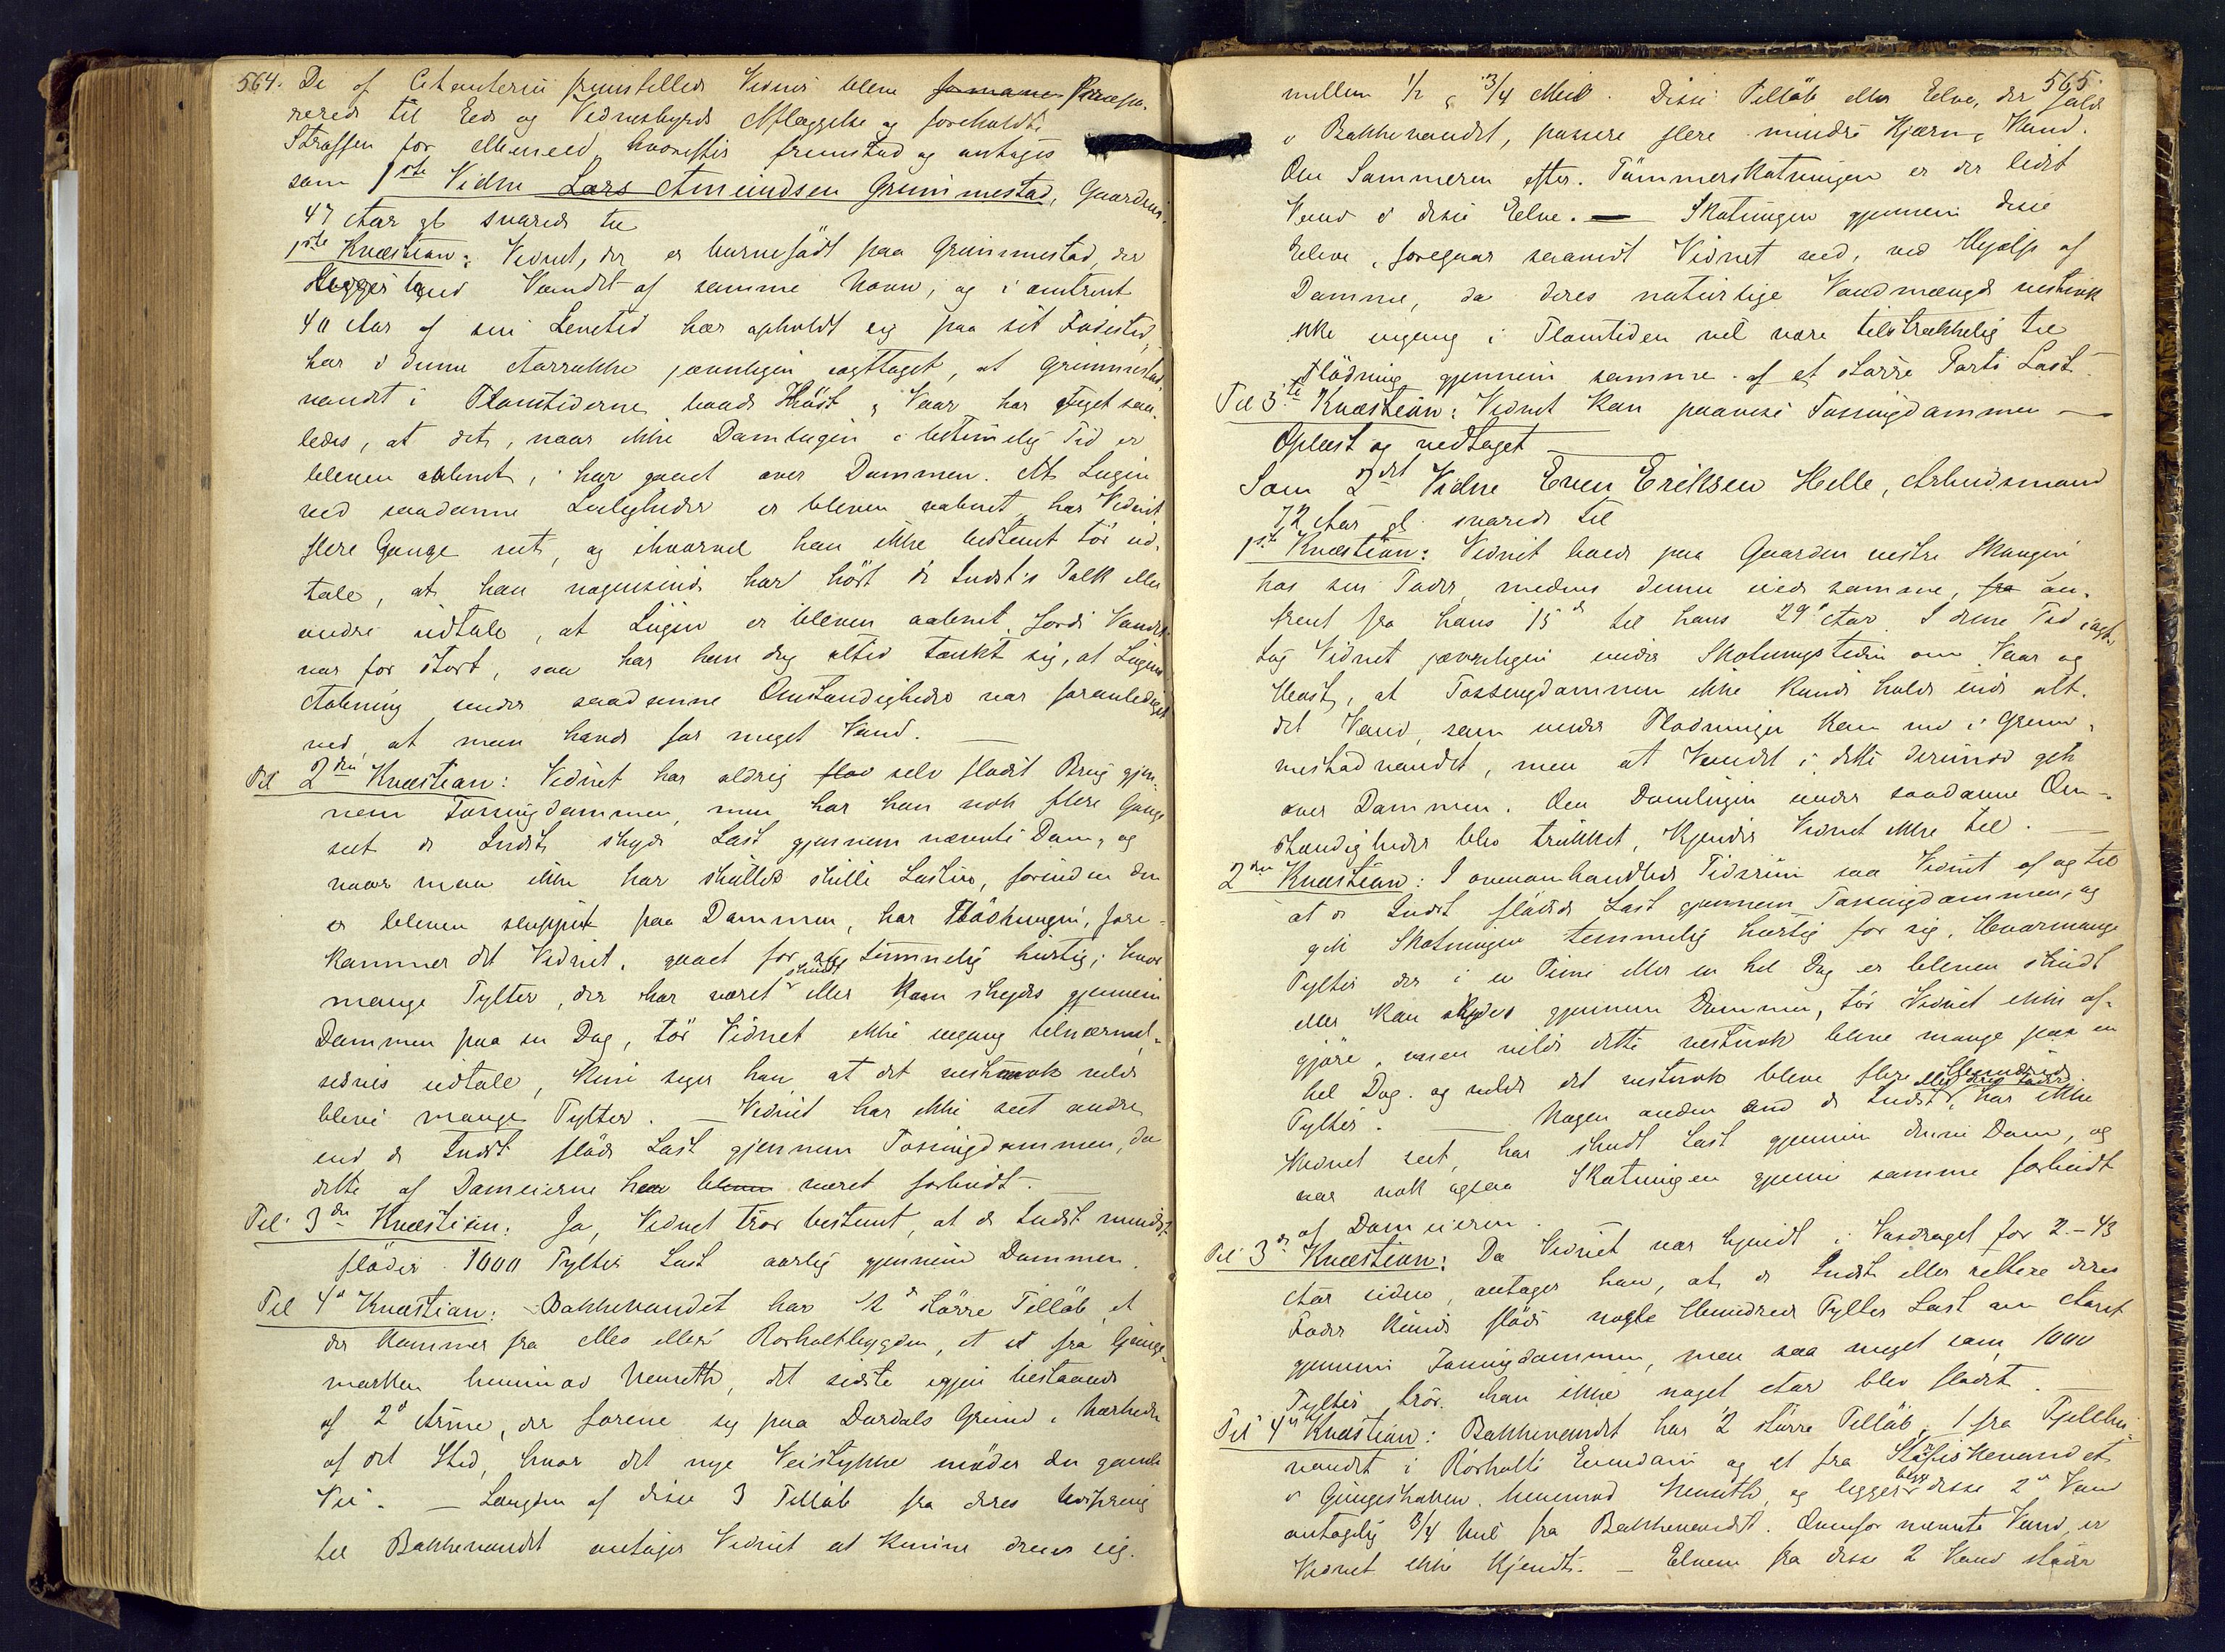 564.
De af Citanterne fremstillede Vidner bleve formane Præpa-
rerede til Eds og Vidnesbyrds Aflæggelse og foreholdte
Straffen for Meneed, hvorefter fremstod og antoges
som 1ste Vidne Lars Amundsen Grummestad, Gaardbr.
47 Aar gl. svarede til
1ste Kvæstion: Vidnet, der er barnefødt paa Grummestad, der
ligger ved Vandet af samme Navn, og i omtrent
40 Aar af sin Levetid har opholdt sig paa sit Fødested,
har i denne Aarrække jævnligen iagttaget, at Grummestad-
vandet i Flomtiderne baade Høst & Vaar har steget saa-
ledes, at det, naar ikke Damlugen i betimelig Tid er
bleven aabnet, har gaaet over Dammen. At Lugen
ved saadanne Leiligheder er bleven aabnet, har Vidnet
flere Gange seet, og ihvorvel han ikke bestemt tør ud-
tale, at han nogensinde har hørt de Indst's Folk eller
andre udtale, at Lugen er bleven aabnet, fordi Vandet
var for stort, saa har han dog altid tænkt sig, at Lugens
Aabning under saadanne Omstændigheder var foranlediget
ved, at man havde for meget Vand.
Til 2den Kvæstion: Vidnet har aldrig selv flødt Brug gjen-
nem Tossingdammen, men har han nok flere Gange
seet de Indst. skyde Last gjennem nævnte Dam, og
naar man ikke har skullet skille Lasten, forinden den
er bleven sluppet paa Dammen, har Flødningen, fore-
kommer det Vidnet, gaaet for sig temmelig hurtig; hvor
mange Tylter, der har været skudt eller kan skydes gjennem
Dammen paa en Dag, tør Vidnet ikke engang tilnærmel-
sesvis udtale, kun siger han at det vistnok vilde
blive mange Tylter. — Vidnet har ikke seet andre
end de Indst. fløde Last gjennem Tossingdammen, da
dette af Dameierne har været forbudt.
Til 3die Kvæstion: Ja, Vidnet tror bestemt, at de Indst. mindst
fløder 1000 Tylter Last aarlig gjennem Dammen.
Til 4de Kvæstion: Bakkevandet har 2de større Tilløb, et
der kommer fra Mo eller Rørholtbygden, et fra Gjunge-
marken henimod Nenseth, det sidste igjen bestaaende
af 2de Arme, der forene sig paa Dardals Grund i Nærheden
af det Sted, hvor det nye Veistykke møder den gamle
Vei. — Længden af disse 3 Tilløb fra deres Udspring
til Bakkevandet antager Vidnet at kunne dreie sig
565.
mellem 1/2 & 3/4 Miil. Disse Tilløb eller Elve, der falde
i Bakkevandet, passere flere mindre Kjærn & Vand.
Om Sommeren efter Tømmerskotningen er der lidet
Vand i disse Elve. — Skotningen gjennem disse
Elve, foregaar saavidt Vidnet ved, ved Hjælp af
Damme, da deres naturlige Vandmængde vistnok
ikke engang i Flomtiden vil være tilstrækkelig til
Flødning gjennem samme af et større Parti Last.
Til 5te Kvæstion: Vidnet kan paavise Tossingdammen —
Oplæst og vedtaget —
Som 2det Vidne Even Eriksen Helle, Arbeidsmand
72 Aar gl. svarede til
1ste Kvæstion: Vidnet boede paa Gaarden vestre Skaugen
hos sin Fader, medens denne eiede samme, fra om-
trent fra hans 15de til hans 29de Aar. I denne Tid iagt-
tog Vidnet jævnligen under Skotningstiden om Vaar og
Høst, at Tossingdammen ikke kunde holde inde alt
det Vand, som under Flødningen kom ned i Grum-
mestadvandet, men at Vandet i dette derimod gik
over Dammen. Om Damlugen under saadanne Om-
stændigheder blev trukket, kjender Vidnet ikke til. —
2den Kvæstion: I ovenomhandlede Tidsrum saa Vidnet af og til
at de Indst. flødede Last gjennem Tossingdammen, og
gik Skotningen temmelig hurtig for sig. Hvormange
Tylter der i en Time eller en hel Dag er bleven skudt
eller kan skydes gjennem Dammen, tør Vidnet ikke af-
gjøre, men vilde dette vistnok blive mange paa en
hel Dag. og vilde det vistnok blive flere Hundrede
Tylter. — Nogen anden end de Indst. eller deres Fader, har ikke
Vidnet seet, har skudt Last gjennem denne Dam, og
var nok ogsaa Skotningen gjennem samme forbudt
af Dameieren.
Til 3die Kvæstion: Da Vidnet var kjendt i Vasdraget for 2-43
Aar siden, antager han, at de Indst. eller rettere deres
Fader kunde fløde nogle Hundrede Tylter Last om Aaret
gjennem Tossingdammen, men saa meget som 1000
Tylter, tror han ikke noget Aar blev flødet. —
Til 4de Kvæstion: Bakkevandet har 2 større Tilløb, 1 fra
vandet i Rørholt Eiendom og et fra
i Gjungeskoven henimod Nenseth, og ligger begge disse 2de Vand
antagelig 3/4 Mil fra Bakkevandet. Ovenfor nævnte Vand, er
Vidnet ikke kjendt. — Elvene fra disse 2 Vand støder